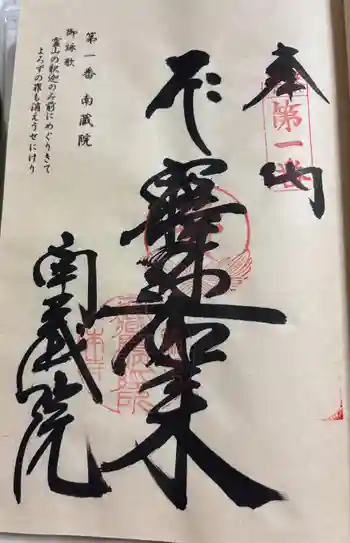 奉納
第一番
釋迦如来
南蔵院
第一番 南蔵院
御詠歌
霊山の釈迦のみ前にめぐりきて
よろずの罪も消えうせにけり